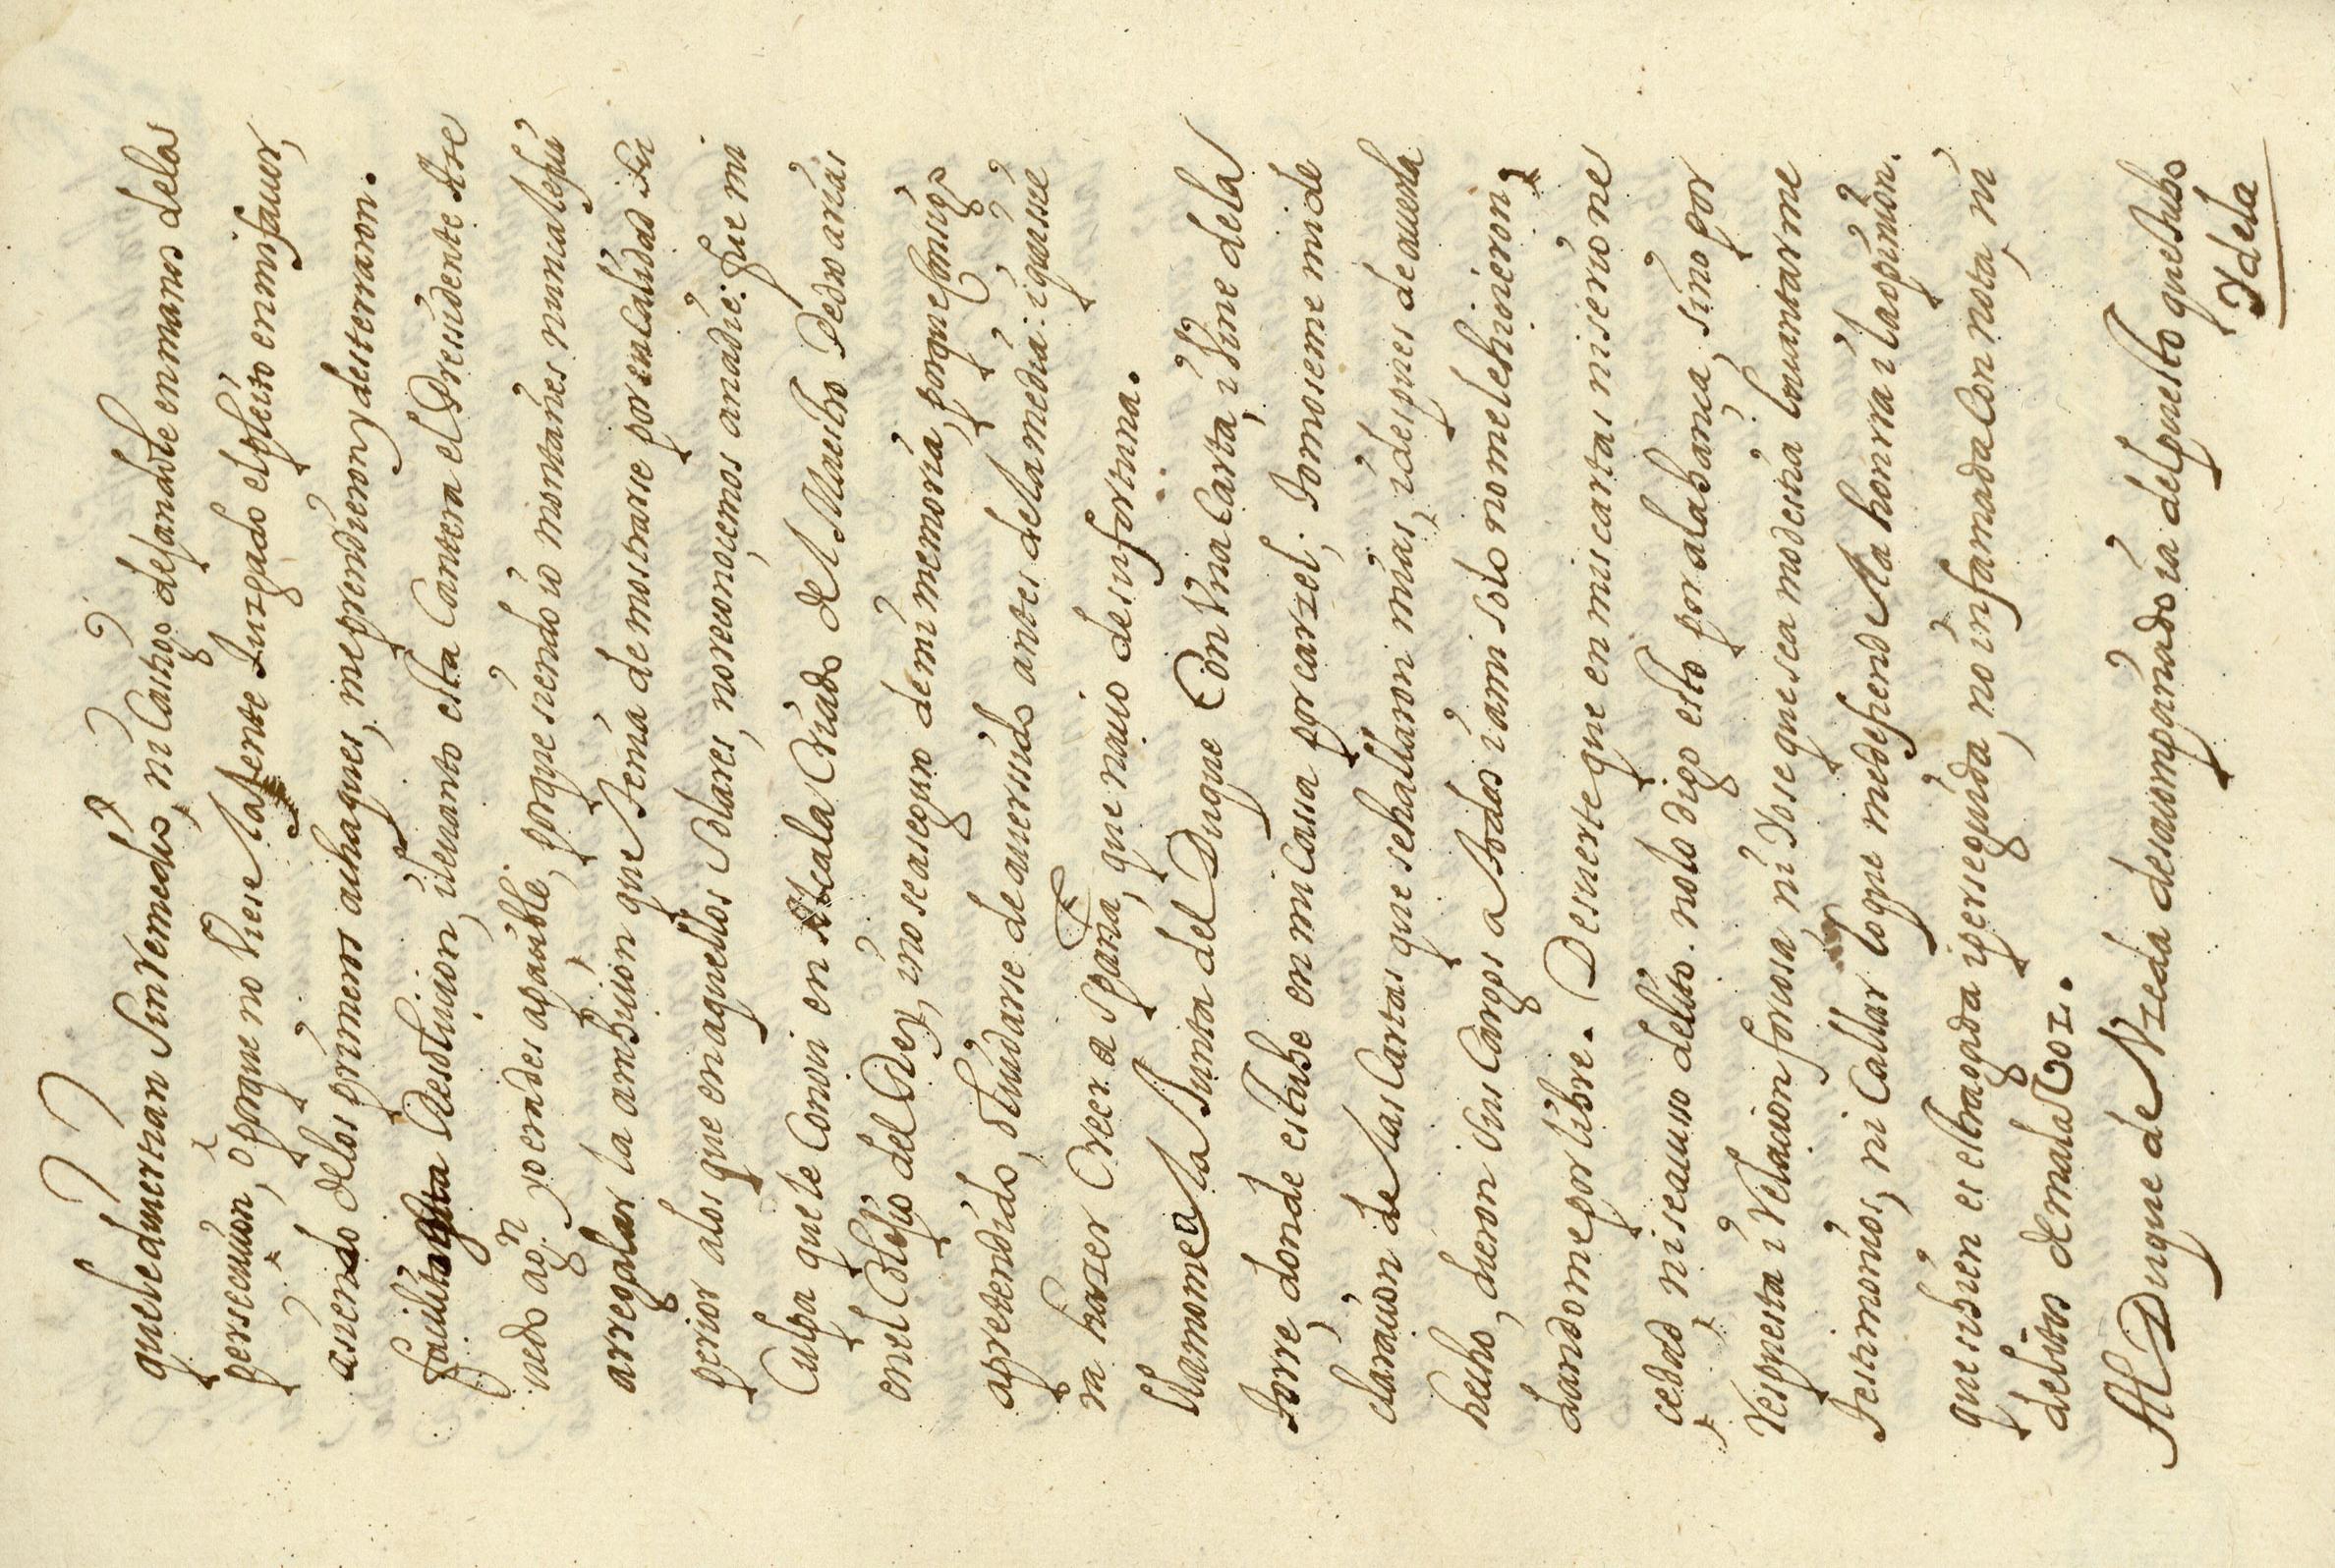 que le aduertian Sin remedio, ni Castigo dejandole en manos dela
persecuion, o porque no Viese la jente Iuzgado el pleito en mi fauor,
asiendo delos primeros achaques, me prendieron y desterraron.
facilito esta Resoluçion, i leuanto esta Cantera el Pressidente Aze
uedo agn yo en des apacible, porque siendo io montañes nunca le fui
a rregalar la ambiçion que Tenia de mostrarse por su Calidad su
perior a los que en aquellos Solares, no reconocemos a nadie. fue mi
Culpa que le Conoci en Alcala Criado del Maestro Pedro arias
en el Colejio del Rey, i no se aseguro de mi memoria, porque Consigo
a pretendido, oluidarse de auer sido antes de la media. i quisiere
ra hazer Creer a España, que naçio de su fortuna.
Llamome a la Iunta del Duque Con Vna Carta, i Vine de la
Torre, donde estube en mi Cassa por carzel. Tomoseme mi de
claraçion de las Cartas que se hallaron mias, i despues de auerla
hecho, dieron Sus Cargos a todos i a mi solo no me le hiçieron,
dandome por libre. De suerte que en mis cartas ni serio ne
cedad, ni se acuso delito. no lo digo esto por alabança, sino por
respuesta i Relacion forçosa, ni Yo se que sea modestia leuantarme
Testimonios, ni Callar lo que me defiende la honrra i la opinion.
que si bien es estragada i perseguida, no infamada Con nota, ni
delitos de mala Voz.
Al Duque de Vzeda desacompañado ia del puesto que tubo
Y dela